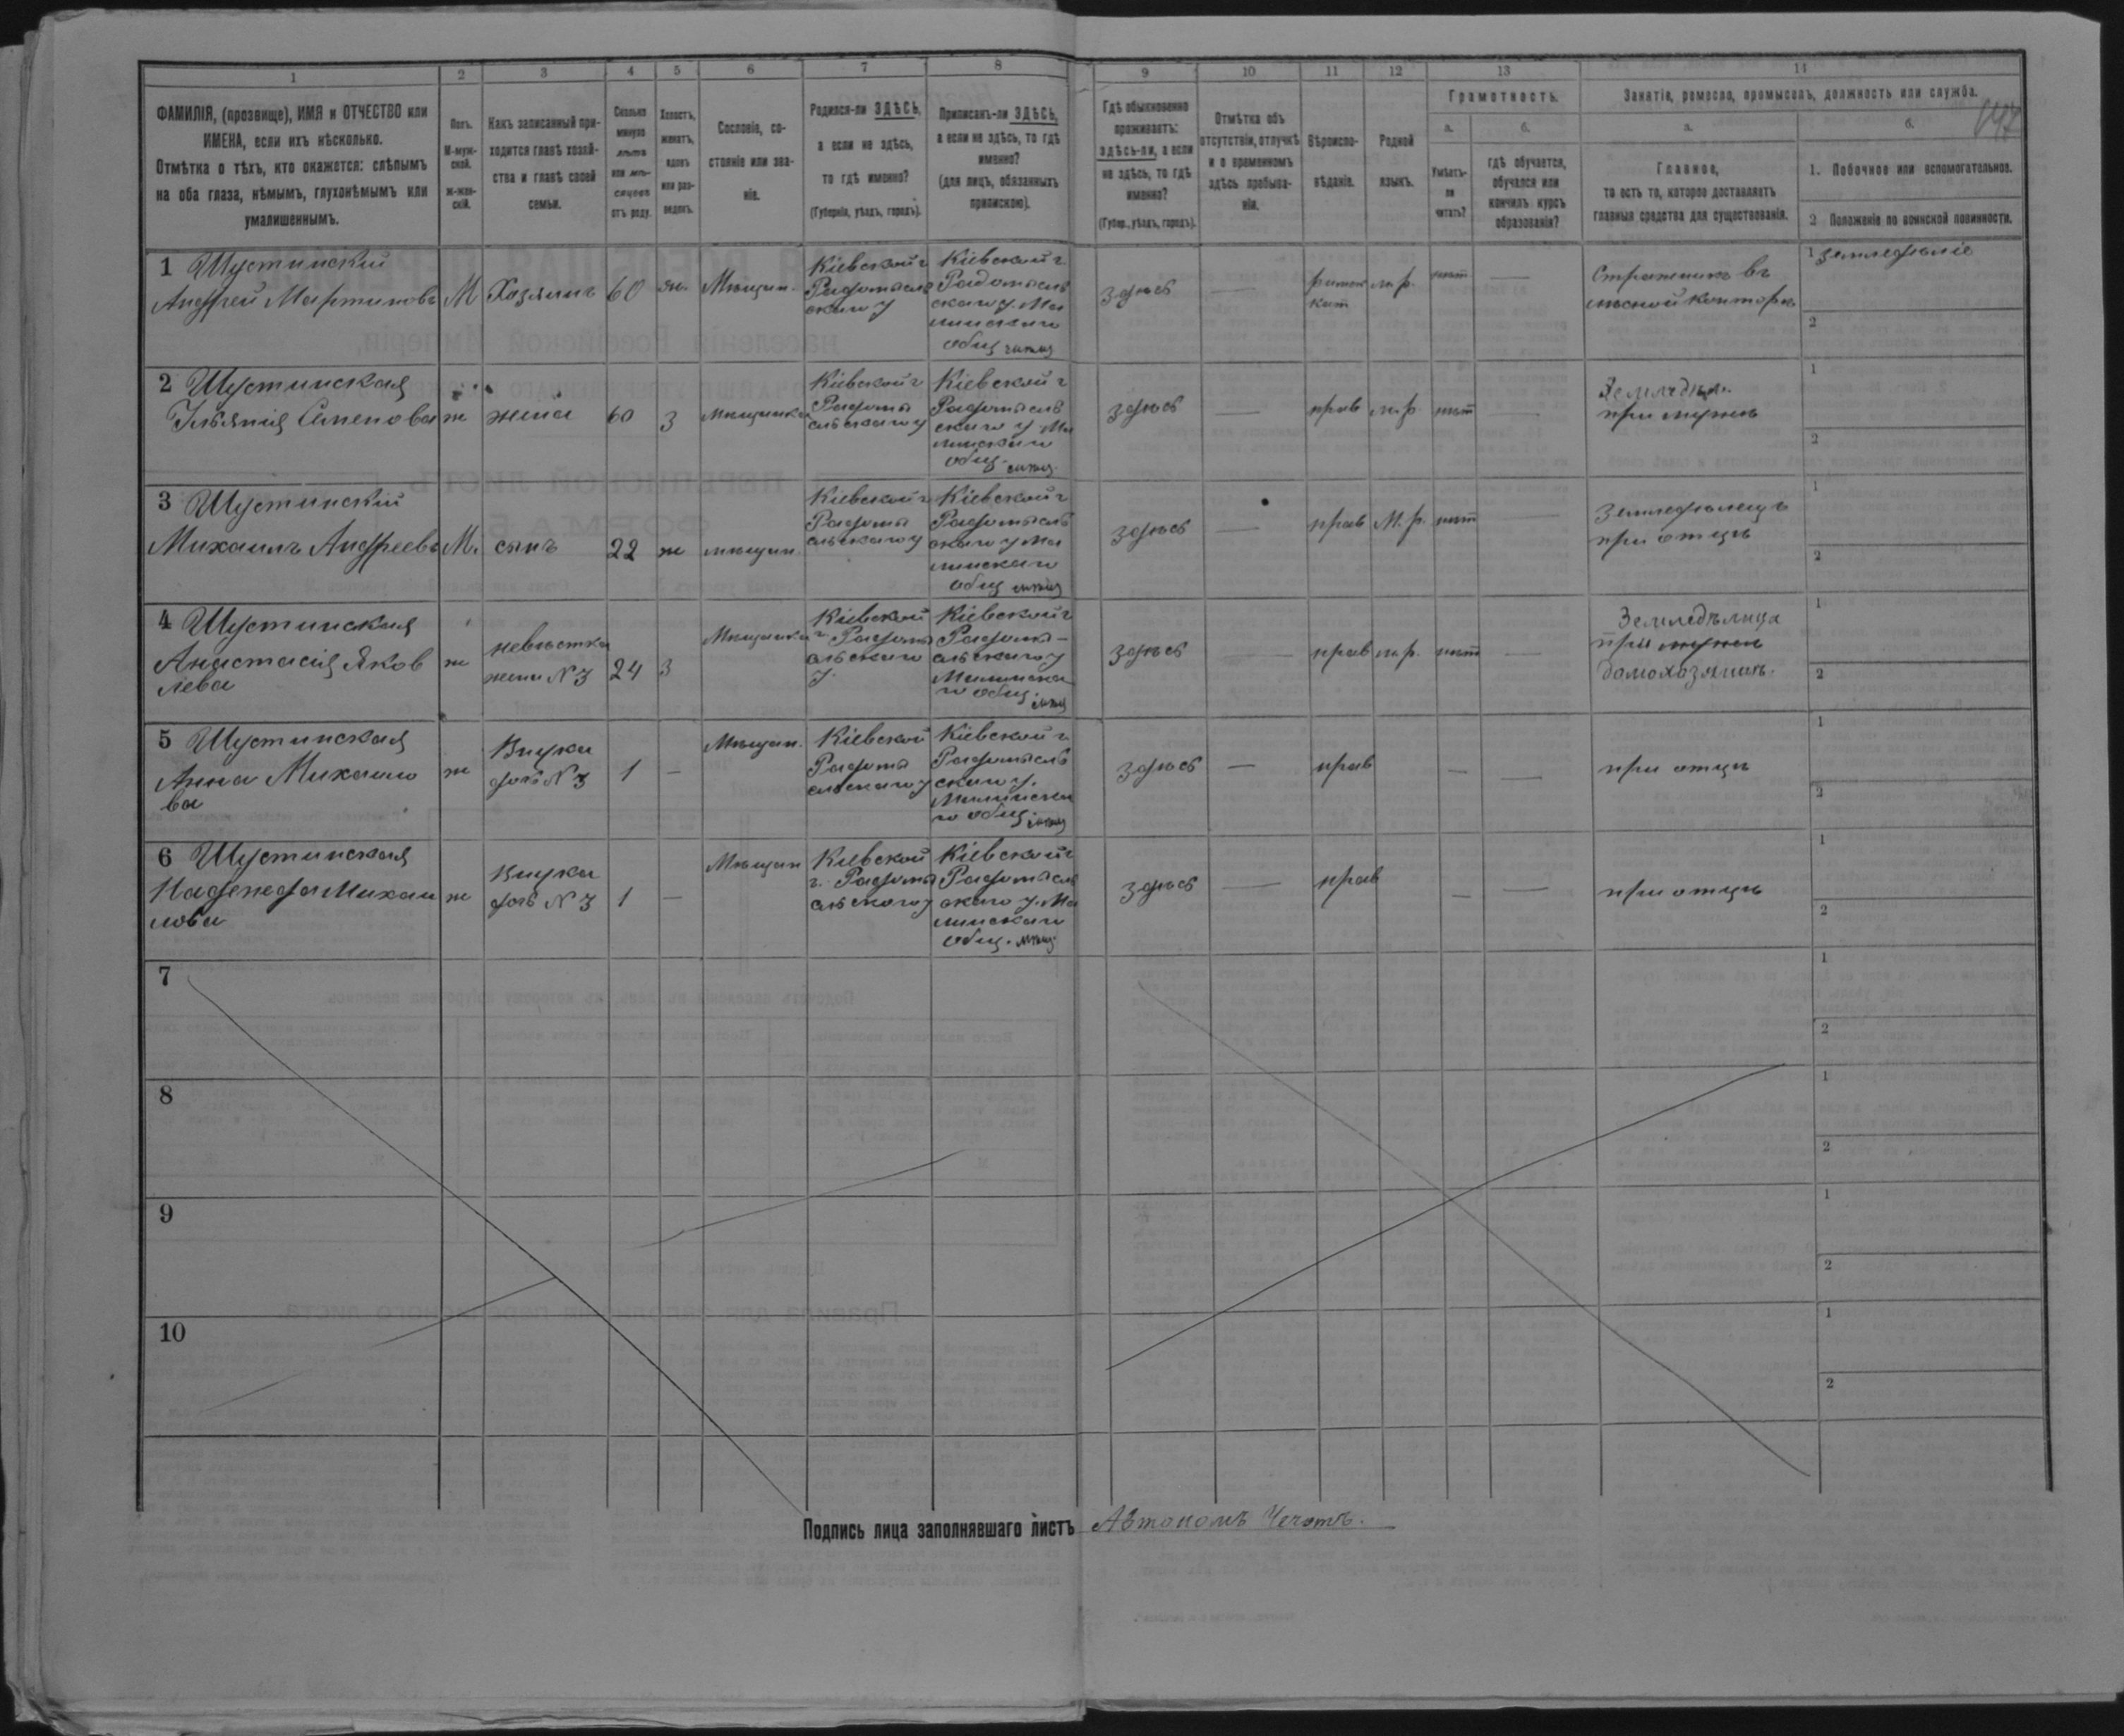 1 2 3 4 5 6 7 8 9 10 11 12 13 14
ФАМИЛІЯ, (прозвище), ИМЯ и ОТЧЕСТВО или
ИМЕНА, если ихъ нѣсколько.
Отмѣтка о тѣхъ, кто окажется: слѣпымъ
на оба глаза, нѣмымъ, глухонѣмымъ или
умалишеннымъ.
Полъ.
М-муж-
ской.
ж-жен-
скій.
Какъ записанный при-
ходится главѣ хозяй-
ства и главѣ своей
семьи.
Сколько
минуло
лѣтъ
или мѣ-
сяцевъ
отъ роду.
Холостъ,
женатъ,
вдовъ
или раз-
веденъ.
Сословіе, со-
стояніе или зва-
ніе.
Родился-ли ЗДѢСЬ,
а если не здѣсь,
то гдѣ именно?
(Губернія, уѣздъ, городъ).
Приписанъ-ли ЗДѢСЬ,
а если не здѣсь, то гдѣ
именно?
(для лицъ, обязанныхъ
припискою).
Гдѣ обыкновенно
проживаетъ:
здѣсь-ли, а если
не здѣсь, то гдѣ
именно?
(Губер., уѣздъ, городъ).
Отмѣтка объ
отсутствіи, отлучкѣ
и о временномъ
здѣсь пребыва-
ніи.
Вѣроиспо-
вѣданіе.
Родной
языкъ.
Грамотность.
а.
Умѣетъ-
ли
читать?
б.
гдѣ обучается,
обучался или
кончилъ курсъ
образованія?
Занятіе, ремесло, промыселъ, должность или служба.
а.
Главное,
то есть то, которое доставляетъ
главныя средства для существованія.
б.
1. Побочное или вспомогательное.
2 Положеніе по воинской повинности.
1 Шустинский
Андрей Мартиновъ
М
Хазяинъ
60
ж.
Мѣщан.
Кіевской г
Радомысль
скаго у
Кіевской г.
Радомысль
скаго у. Ма
линскаго
общ
здѣсь
м.р.
нѣт
—
Стражникъ въ
лѣсной конторѣ
1 земледѣліе
2
2 Шустинская
Ульянія Семенова
ж
жена
60
З
мѣщанка
Кіевской г
Радомы
сльскаго у
Кіевской г
Радомысль
скаго у. Ма
линскаго
общ.
здѣсь
—
прав
м.р.
нѣт
—
Земледѣл.
при мужѣ
1
2
3 Шустинскій
Михаилъ Андреевъ
М.
сынъ
22
ж
мѣщан.
Кіевской г
Радомы
сльскаго у
Кіевской г
Радомысль
скаго у Ма
линскаго
общ
здѣсь
—
прав
М.р.
нѣт
—
земледѣлецъ
при отцѣ
1
2
4 Шустинская
Анастасія Яков
лева
ж
невѣстка
жена N 3
24
З
Мѣщанка
Кіевской
г. Радомы
сльскаго
у.
Кіевской г
Радомы-
сльскаго у
Малинска
го общ.
здѣсь
—
прав
м.р.
нѣт
—
Земледѣлица
при мужѣ
домохозяинѣ.
1
2
5 Шустинская
Анна Михаило
ва
ж
Внука
дочь N 3
1
—
Мѣщан.
Кіевской
Радомы
сльскаго у
Кіевской г.
Радомысль
скаго у.
Малинска
го общ.
здѣсь
—
прав
—
—
при отцѣ
1
2
6 Шустинская
Надежда Михаи
лова
ж
Внука
дочь N 3
1
—
Мѣщан
Кіевской
г. Радомы
сльскаго у
Кіевской г
Радомысль
скаго у. Ма
линскаго
общ.
здѣсь
—
прав
—
—
при отцѣ
1
2
7
1
2
8
1
2
9
1
2
10
1
2
Подпись лица заполнявшаго листъ Автономъ